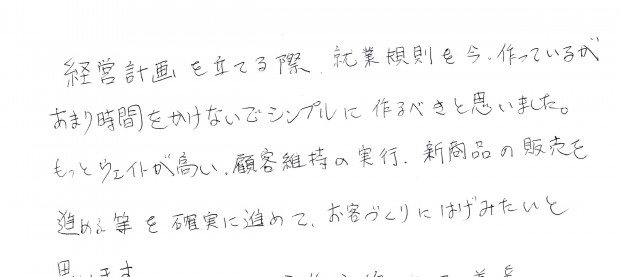 経営計画を立てる際、就業規則を今、作っているが
あまり時間をかけないでシンプルに作るべきと思いました。
もっとウェイトが高い、顧客維持の実行、新商品の販売を
進める等を確実に進めて、お客づくりにはげみたいと
思います